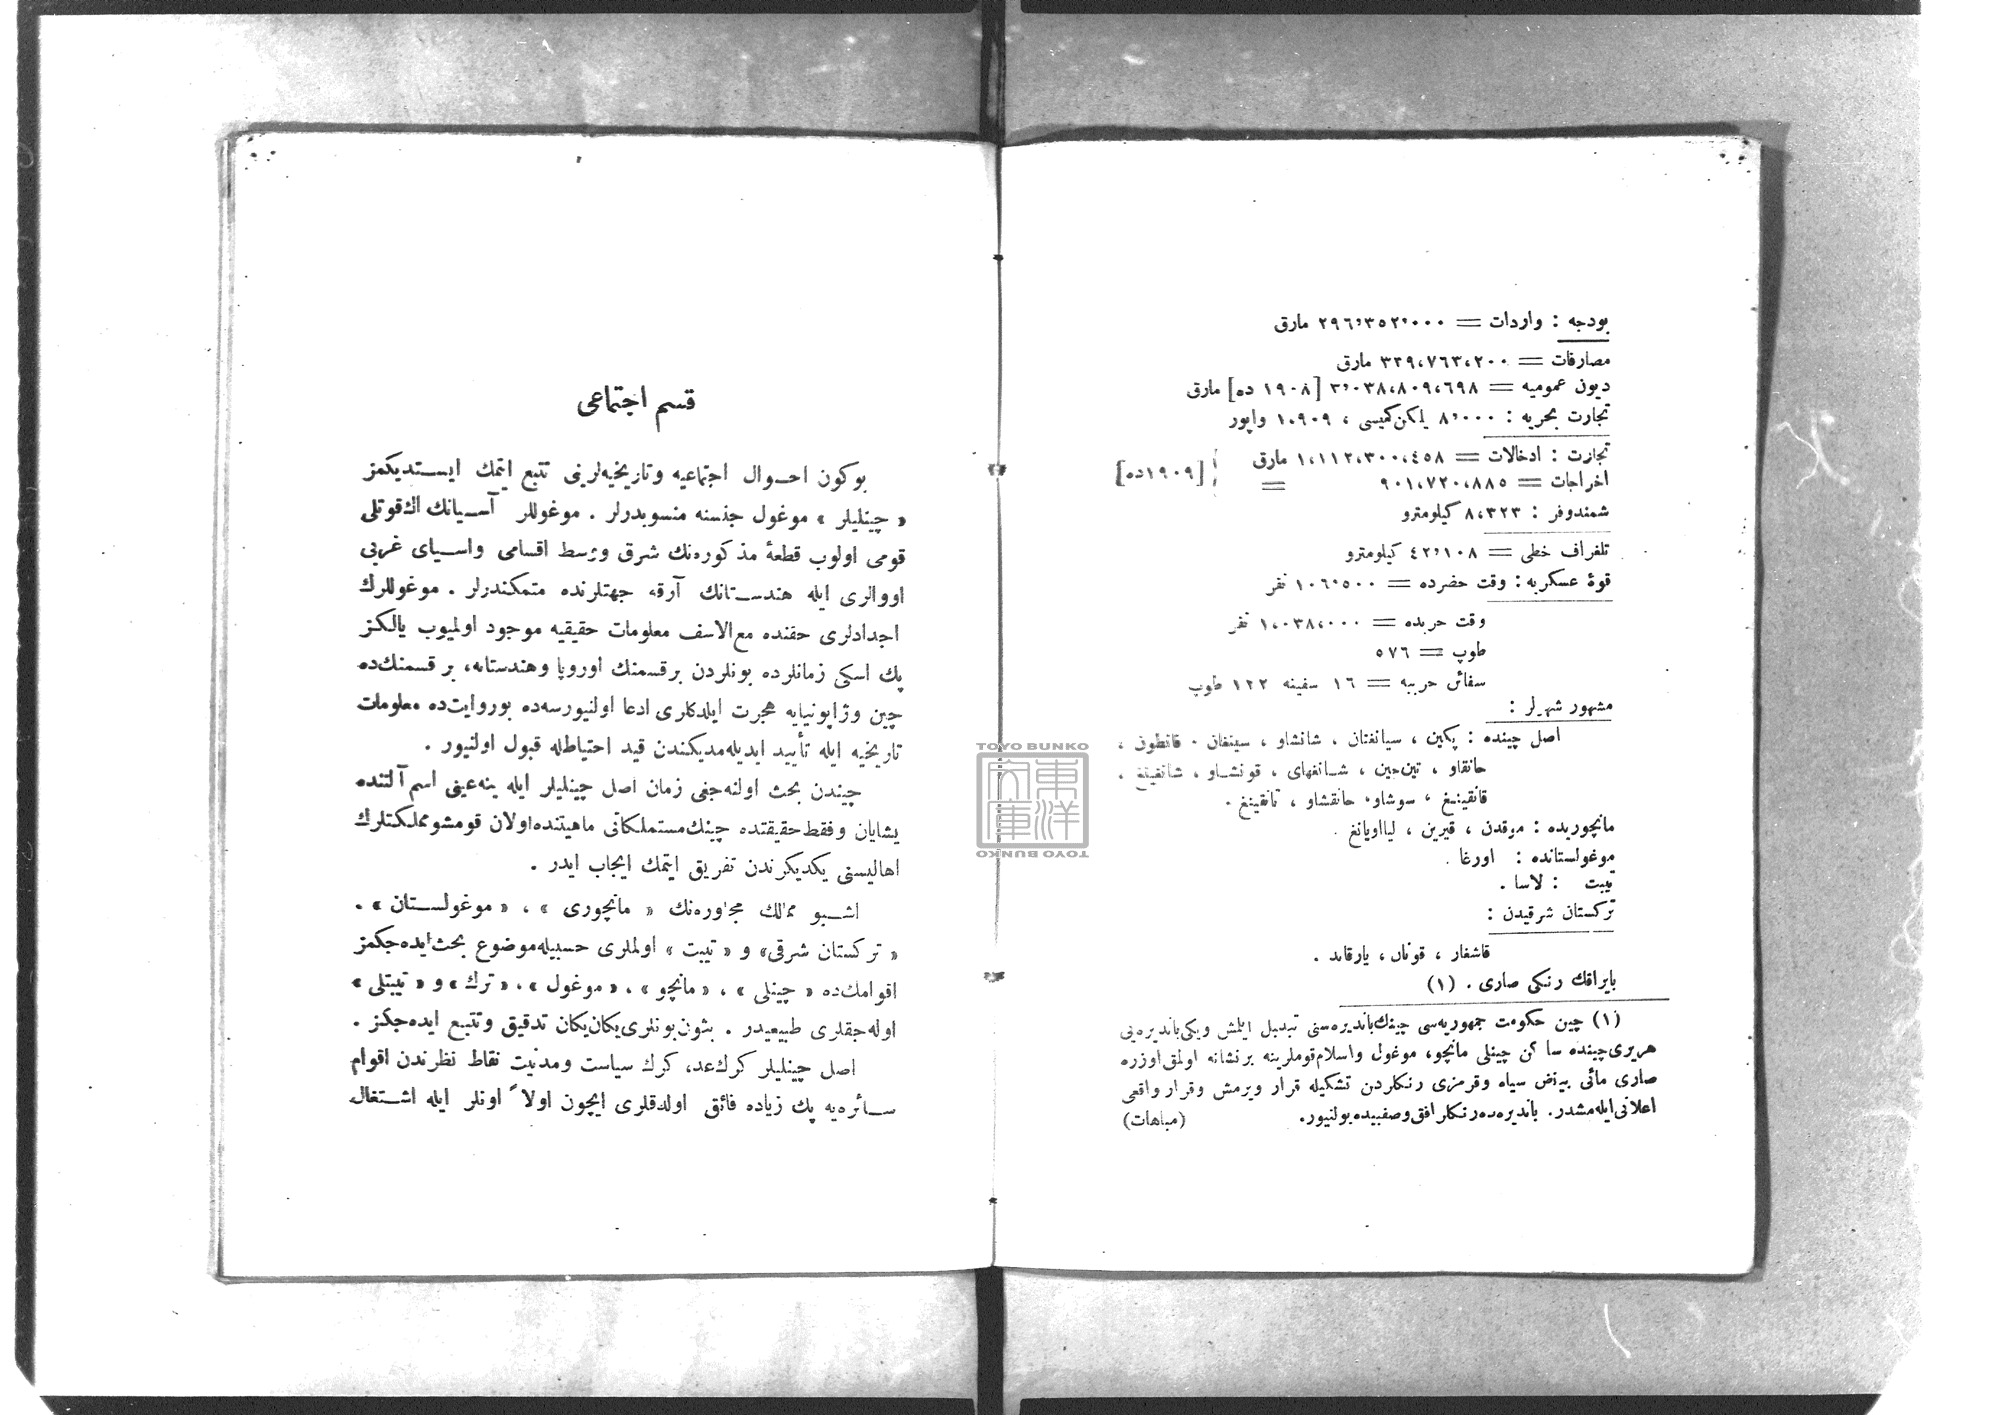 بودجه : واردات = ٢٩٦٬٣٥٢٬٠٠٠ مارق
مصارفات = ٣٢٩،٧٦٣،٢٠٠ مارق
ديون عموميه = ٣٬٠٣٨،٨٠٩،٦٩٨ [١٩٠٨ ده] مارق
تجارت بحريه : ٨٬٠٠٠ يلكن كميسى ، ١٠٩٠٩ واپور
تجارت : ادخالات = ١،١١٢،٣٠٠،٤٥٨ مارق
اخراجات = ٩٠١،٧٢٠،٨٨٥ =
[١٩٠٩ده]
شمندوفر : ٨،٣٢٣ كيلومترو
تلغراف خطى = ٤٢٬١٠٨ كيلومترو
قوۀ عسكريه : وقت حضرده = ١٠٦،٥٠٠ نفر
وقت حربده = ١،٠٣٨،٠٠٠ نفر
طوپ = ٥٧٦
سفائن حربيه = ١٦ سفينه ١٢٢ طوپ
مشهور شهرلر :
اصل چينده : پكين ، سيانفتان ، شانشاو ، سينغان ، قانطون ،
حانقاو ، تين‌جين ، شانغهاى ، قونشاو ، شانغينغ ،
قانقينيغ ، سوشاو، حانقشاو ، نانقينغ .
مانچوريده : موقدن ، قيرين ، ليااويانغ .
موغولستانده : اورغا .
تيبت : لاسا .
تركستان شرقيدن :
قاشغار ، قوتان ، ياركند .
بايراقك رنكى صارى . (١)
(١) چين حكومت جمهوريه‌سى چينك بانديره‌سنى تبديل ايلمش ويكى بانديره‌يى
هربرى چينده ساكن چينلى مانچو، موغول واسلام قوملرينه برنشانه اولمق اوزره
صارى مائى بياض سياه وقرمزى رنكلردن تشكيله قرار ويرمش وقرار واقعى
اعلانى ايله‌مشدر. بانديره‌ده رنكلر افقى وصفيده بولنيور. (مباهات)
قسم اجتماعى
بوكون احوال اجتماعيه وتاريخيه‌لرينى تتبع ايتمك ايستديكمز
« چينليلر » موغول جنسنه منسوبدرلر . موغوللر آسيانك اك قوتلى
قومى اولوب قطعۀ مذكوره‌نك شرق ووسط اقسامى واسياى غربى
اووالرى ايله هندستانك آرقه جهتلرنده متمكندرلر . موغوللرك
اجدادلرى حقنده مع‌الاسف معلومات حقيقيه موجود اولميوب يالكز
پك اسكى زمانلرده بونلردن برقسمنك اوروپا وهندستانه، برقسمنك‌ده
چين وژاپونيايه هجرت ايلدكلرى ادعا اولنيورسه‌ده بوروايت‌ده معلومات
تاريخيه ايله تأييد ايديله‌مديكندن قيد احتياطله قبول اولنيور .
چيندن بحث اولنه‌جغى زمان اصل چينليلر ايله ينه عينى اسم آلتنده
يشايان وفقط حقيقتده چينك مستملكاتى ماهيتنده اولان قومشو مملكتلرك
اهاليسنى يكديكرندن تفريق ايتمك ايجاب ايدر .
اشبو ممالك مجاوره‌نك « مانچورى » ، « موغولستان » .
« تركستان شرقى» و « تيبت » اولملرى حسبيله موضوع بحث ايده‌جكمز
اقوامك‌ده « چينلى » ، « مانچو » ، « موغول » ، « ترك » و « تيبتلى »
اوله‌جقلرى طبيعيدر . بتون بونلرى يكان يكان تدقيق وتتبع ايده‌جكز .
اصل چينليلر كرك عدد، كرك سياست ومدنيت نقاط نظرندن اقوام
سائره‌يه پك زياده فائق اولدقلرى ايچون اولا ً اونلر ايله اشتغال
TOYO BUNKO
東洋文庫
TOYO BUNKO